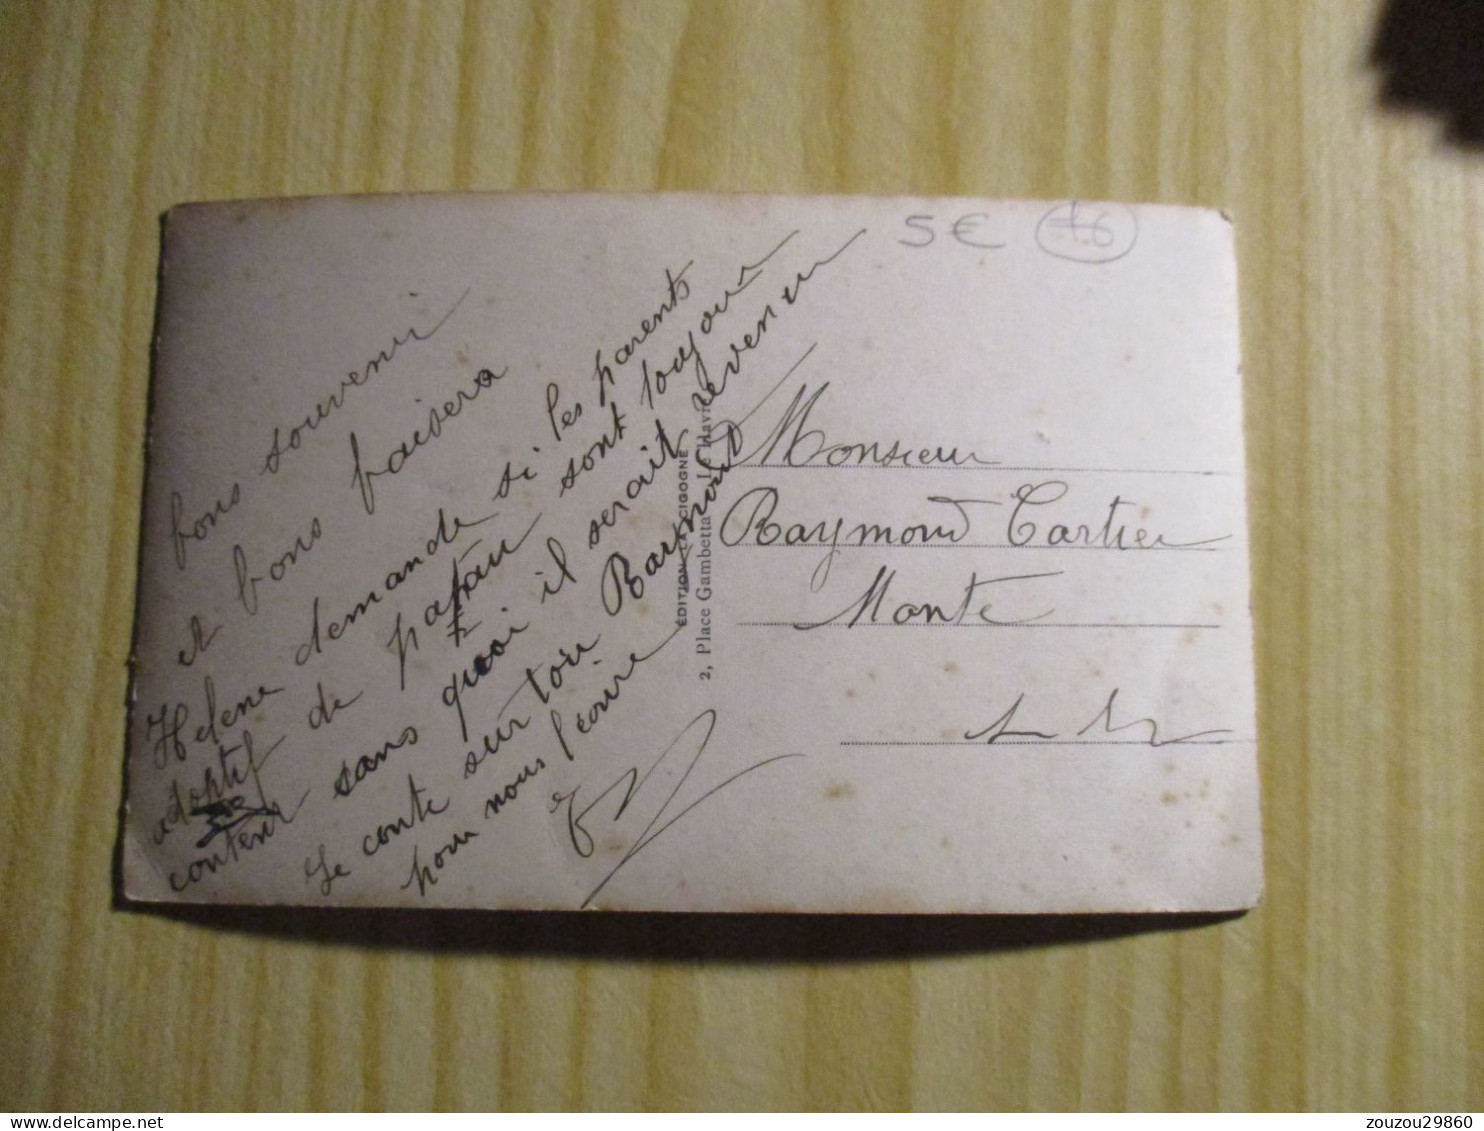 5€ 76
bons souvenir
et bons baisera
Helene demande si les parents
adoptif de patau sont toujour
content sans quoi il serait revenu
Je conte sur toi Raymond
pour nous l'écrire
ÉDITION LA CIGOGNE
2, Place Gambetta - Le Havre
Monsieur
Raymond Cartier
Monte
zouzou29860